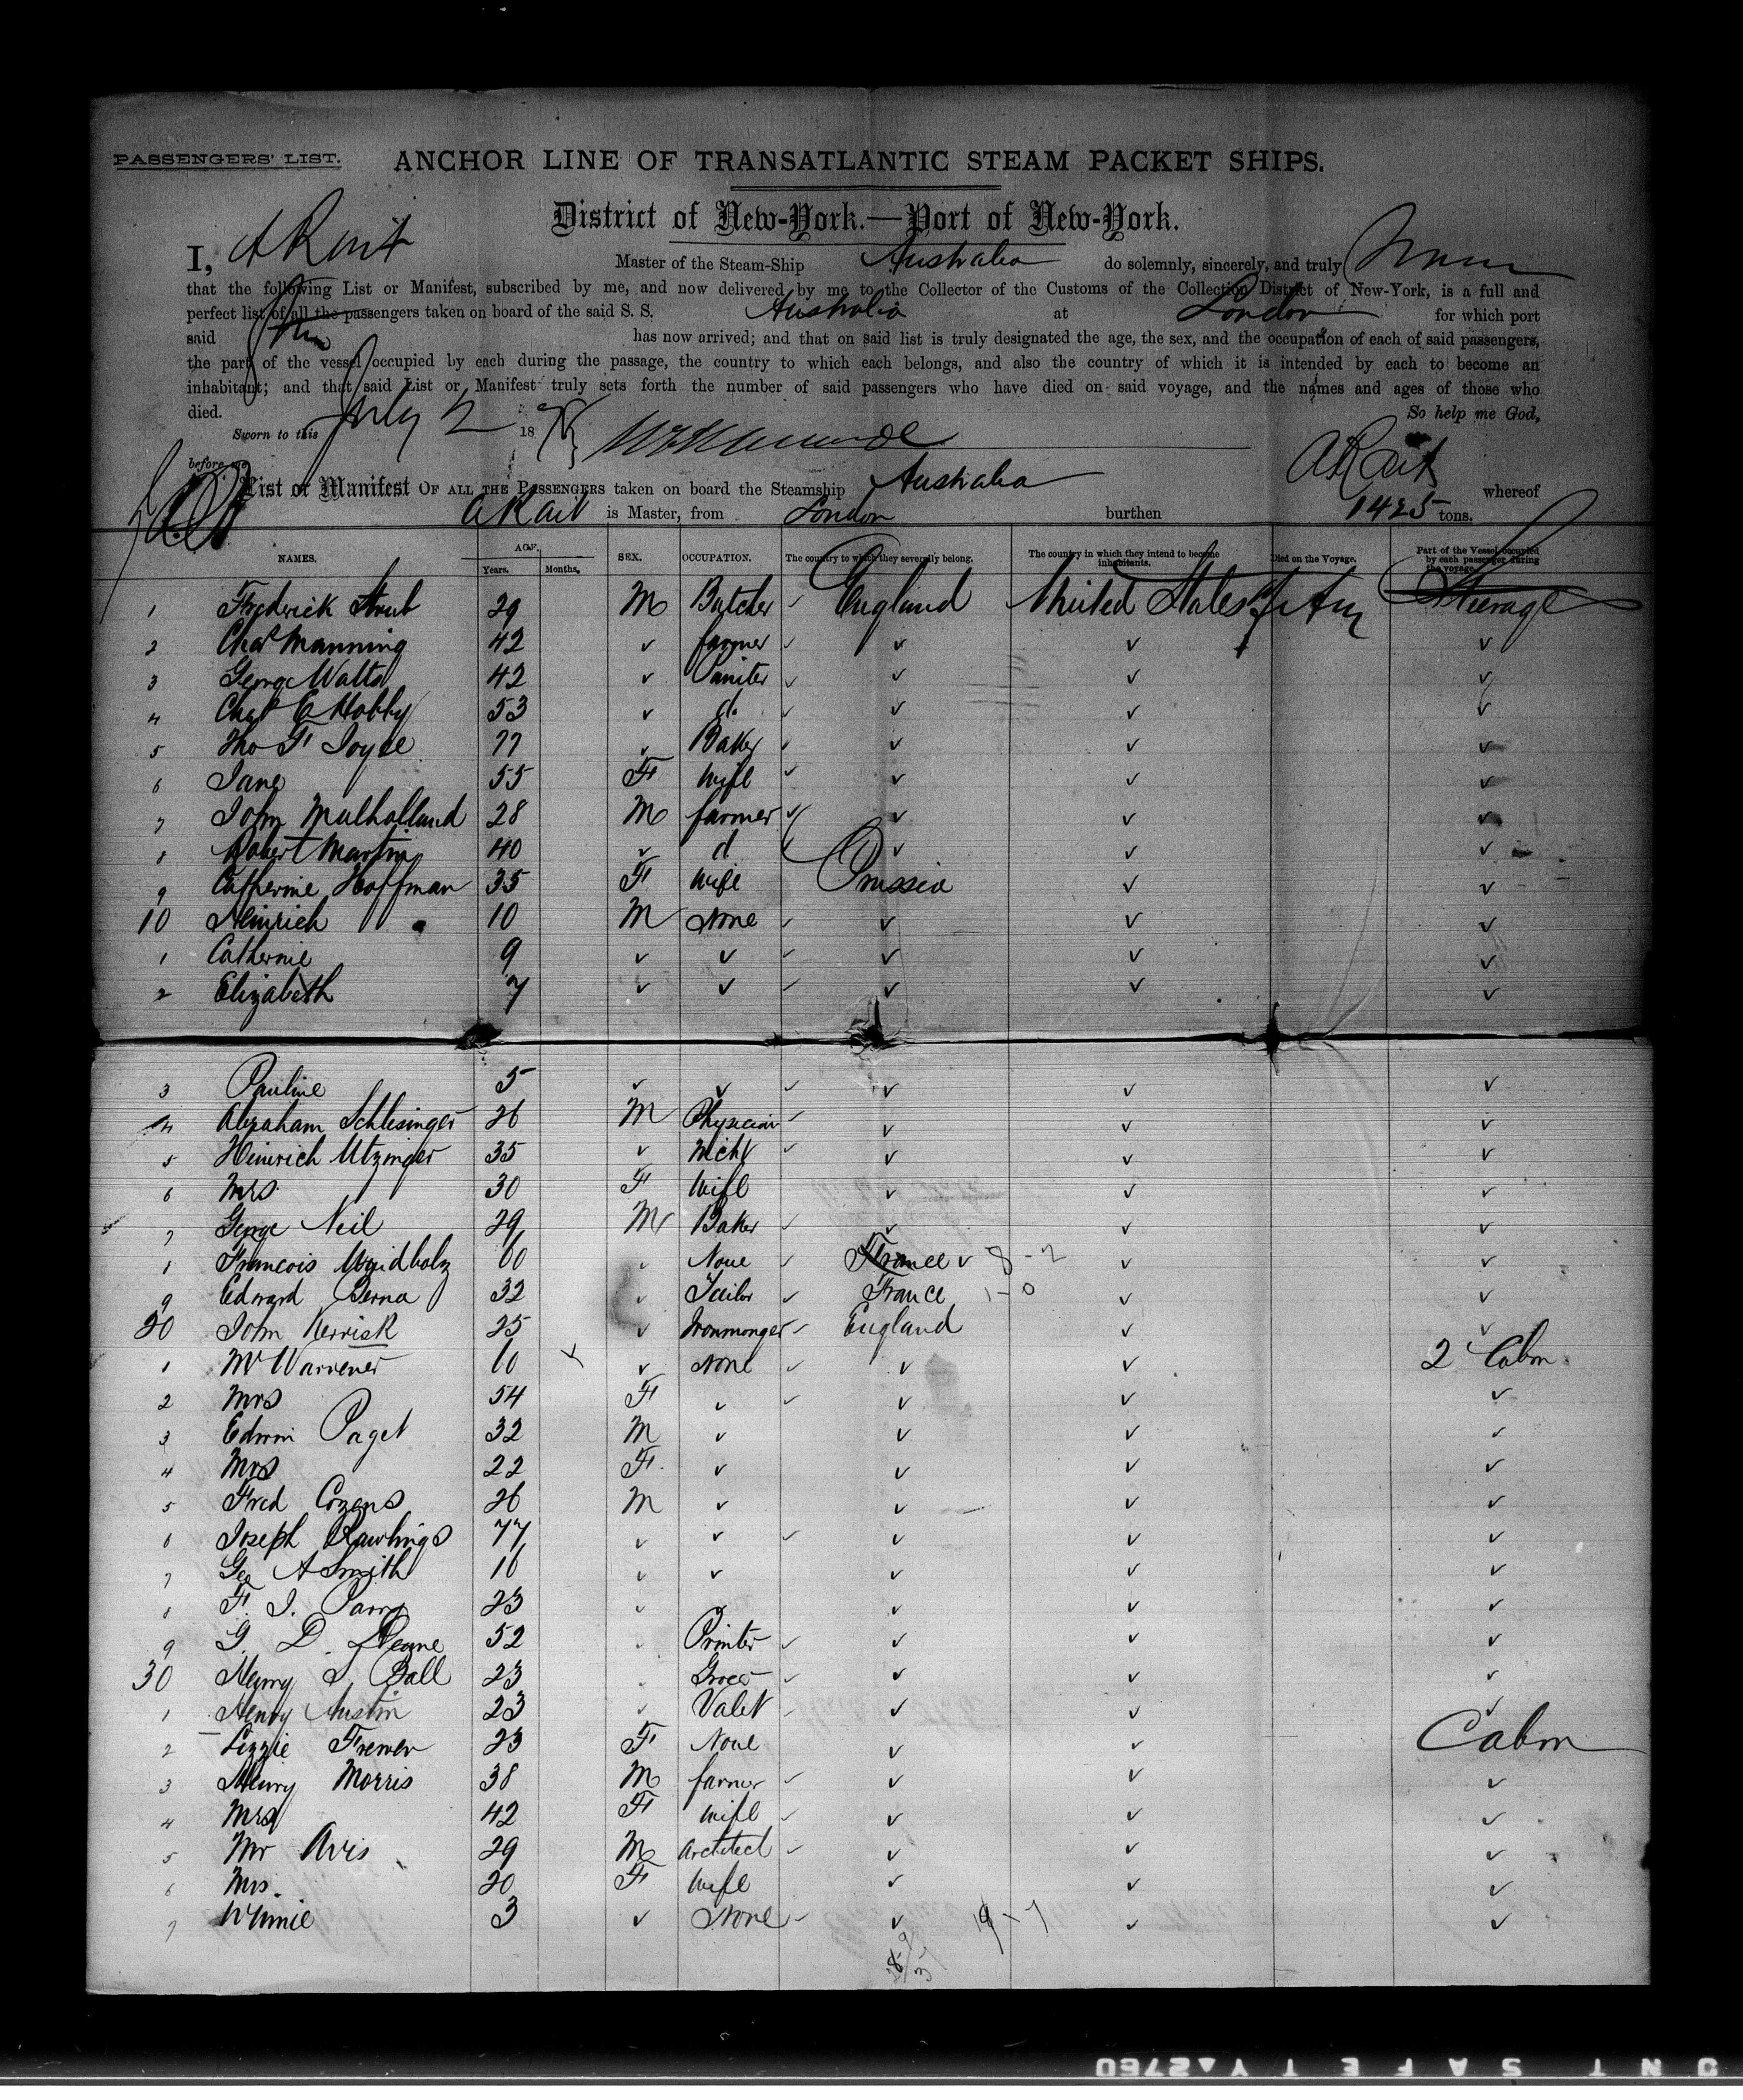 PASSENGERS' LIST. ANCHOR LINE OF TRANSATLANTIC STEAM PACKET SHIPS.
District of New-York.—Port of New-York.
I, A Rait Master of the Steam-Ship Australia do solemnly, sincerely, and truly
that the following List or Manifest, subscribed by me, and now delivered by me to the Collector of the Customs of the Collection District of New-York, is a full and
perfect list of all the passengers taken on board of the said S. S. Australia at London for which port
said has now arrived; and that on said list is truly designated the age, the sex, and the occupation of each of said passengers,
the part of the vessel occupied by each during the passage, the country to which each belongs, and also the country of which it is intended by each to become an
inhabitant; and that said List or Manifest truly sets forth the number of said passengers who have died on said voyage, and the names and ages of those who
died. So help me God,
Sworn to this July 2 18
before me A Rait
List or Manifest OF ALL THE PASSENGERS taken on board the Steamship Australia whereof
A Rait is Master, from London burthen 1425 tons.
NAMES. AGE. Years. Months. SEX. OCCUPATION. The country to which they severally belong. The country in which they intend to become inhabitants. Died on the Voyage. Part of the Vessel occupied by each passenger during the voyage.
1 Frederick Strub 29 M Butcher England United States of Am Steerage
2 Chas Manning 42 farmer
3 George Watts 42
4 Chas E Hobby 53 d.
5 Tho F Joyce 77 Baker
6 Jane 55 F Wife
7 John Mulholland 28 M farmer
8 Robert Martin 40 d
9 Catherine Hoffman 35 F Wife Prussia
10 Heinrich 10 M None
1 Catherine 9
2 Elizabeth 7
3 Pauline 5
4 Abraham Schlesinger 26 M Physician
5 Heinrich Utzinger 35
6 Mrs 30 F Wife
7 George Neil 29 M Baker
8 Francois 60 None France 8-2
9 Edward Berna 32 Tailor France 1-0
20 John Kerrisk 25 Ironmonger England
1 Mr Warrener 60 None 2 Cabin
2 Mrs 54 F
3 Edwin Paget 32 M
4 Mrs 22 F
5 Fred Cozens 26 M
6 Joseph Rawlings 77
7 Geo A Smith 16
8 F. J. Parry 23
9 G. D. Deane 52 Printer
30 Henry J Ball 23 Grocer
1 Henry Austin 23 Valet
2 Lizzie Frewer 23 F None Cabin
3 Henry Morris 38 M farmer
4 Mrs 42 F Wife
5 Mr Avis 29 M Architect
6 Mrs. 20 F Wife
7 Winnie 3 None
19-7
37